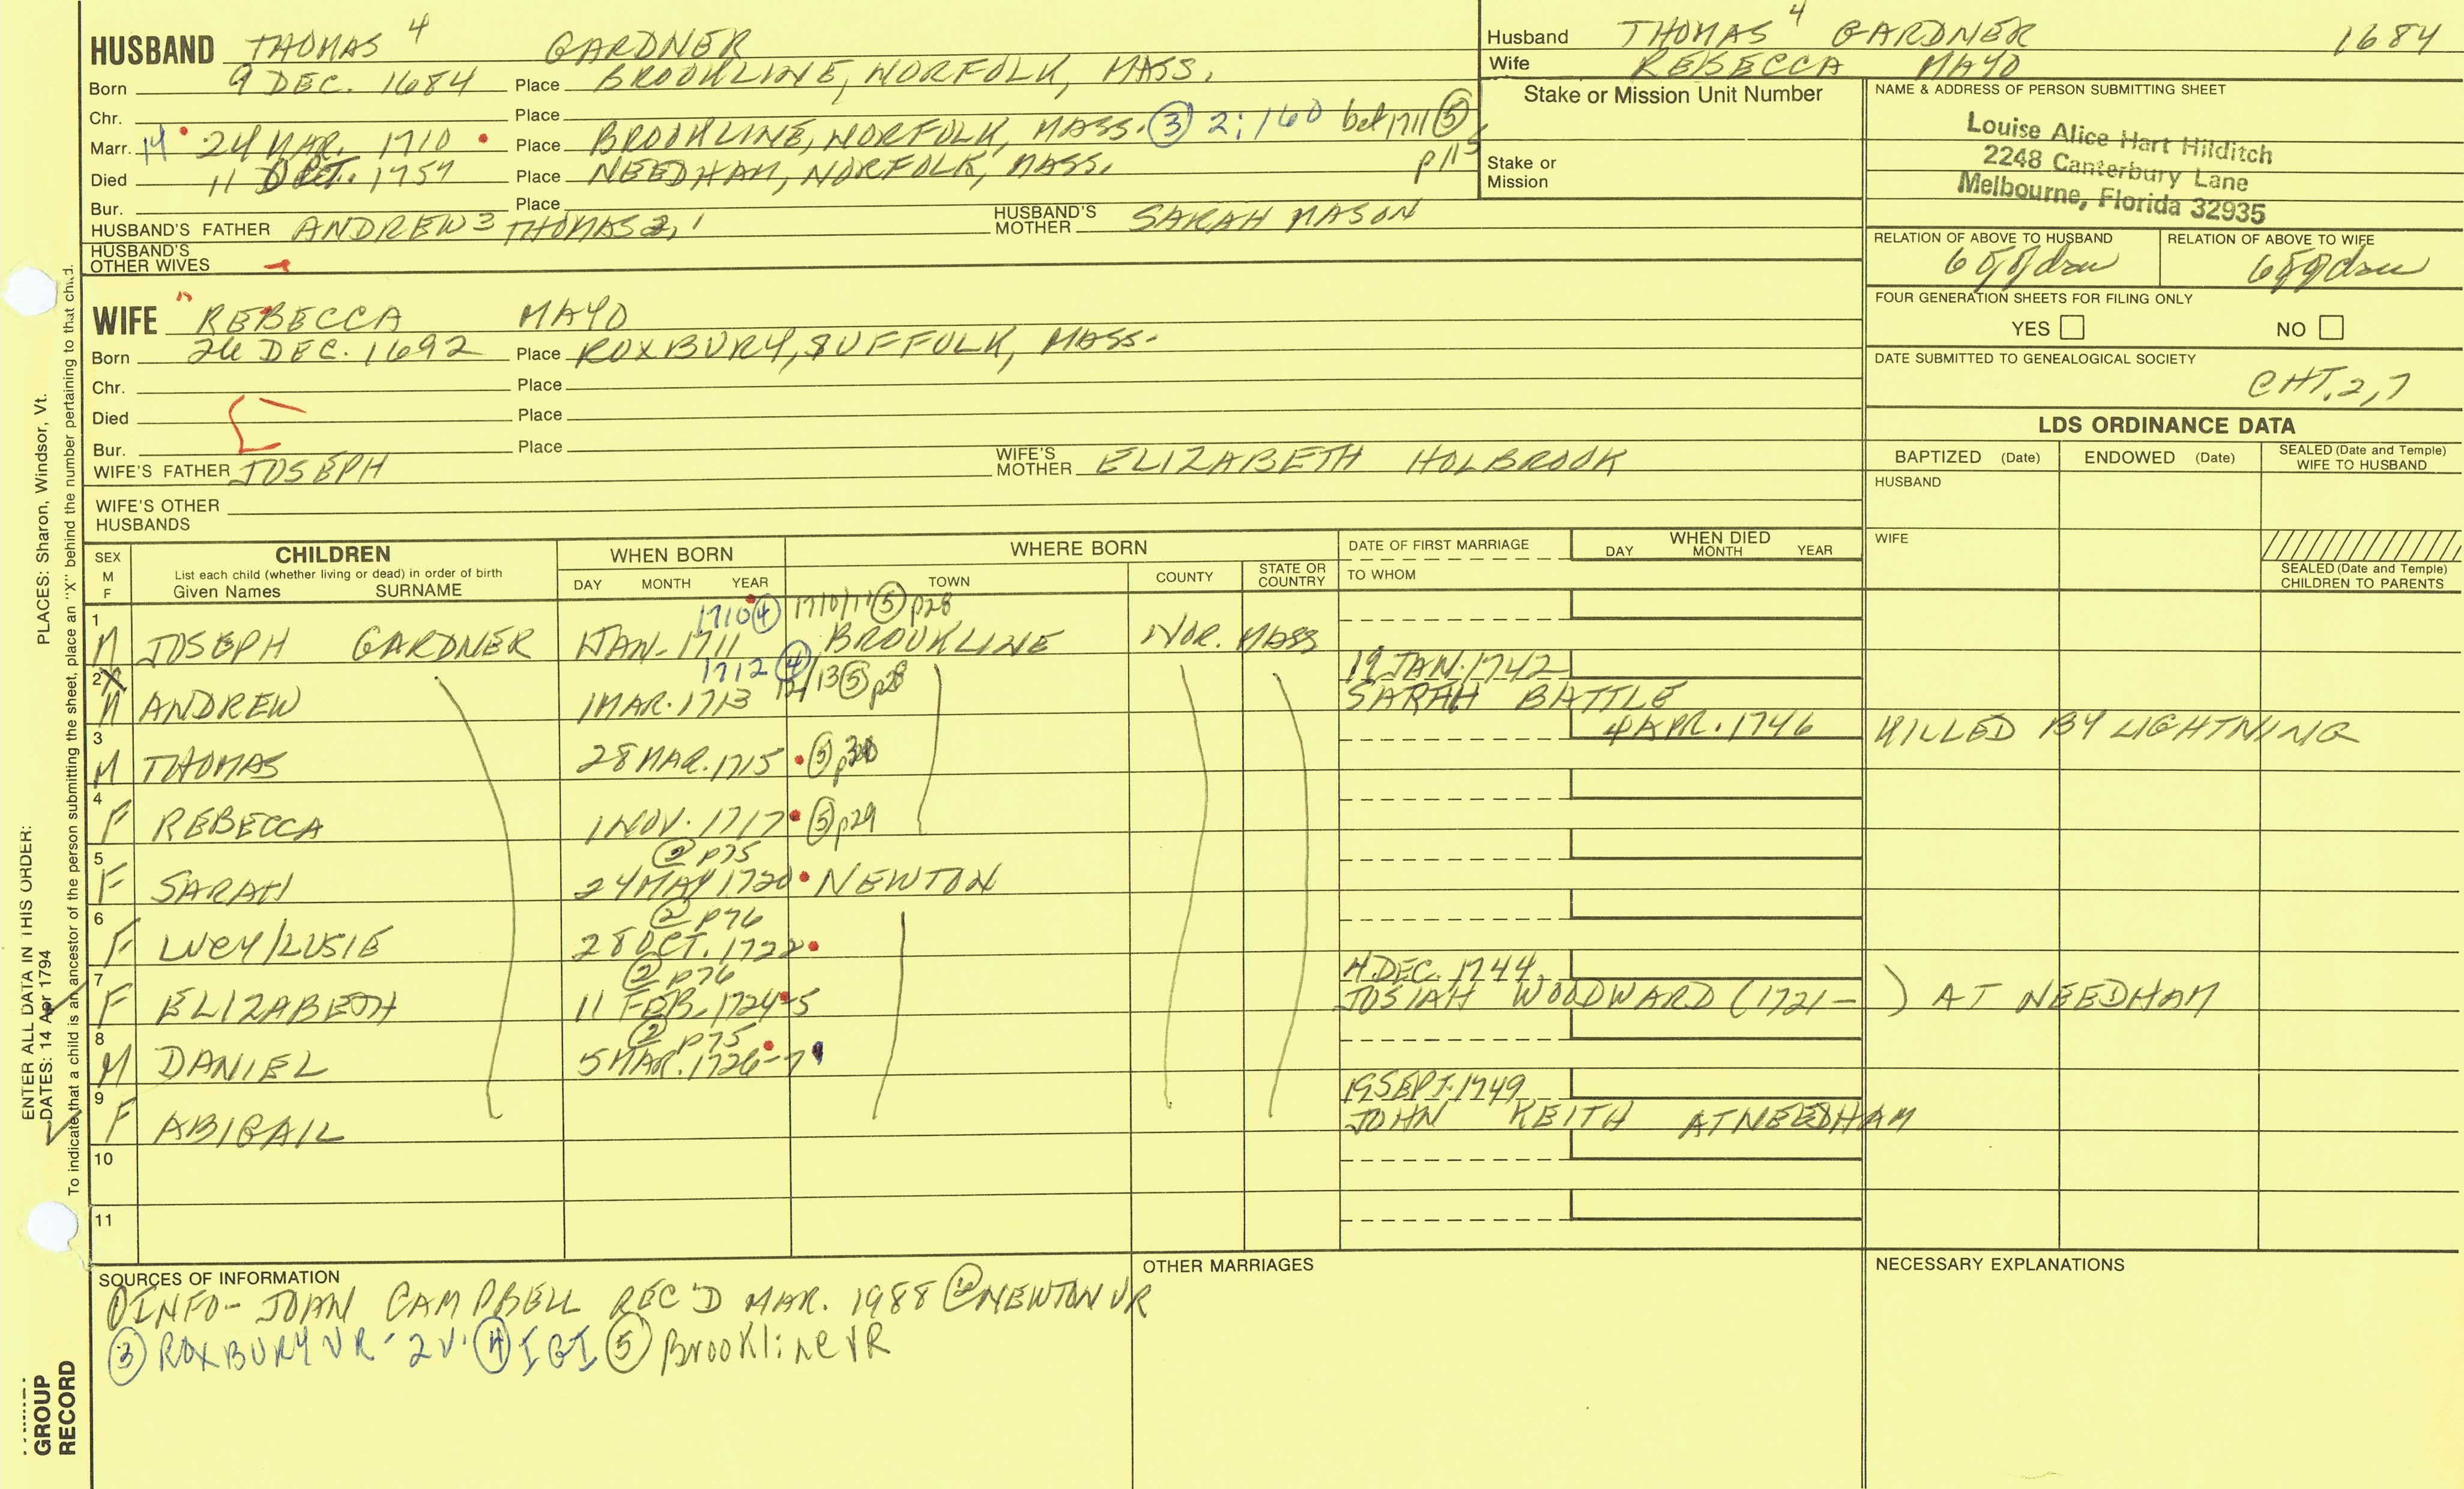 HUSBAND THOMAS 4 GARDNER
Born 9 DEC. 1684 Place BROOKLINE, NORFOLK, MASS.
Chr. Place
Marr. 14 24 MAR. 1710 Place BROOKLINE, NORFOLK, MASS. ③ 2:160 bef 1711 ⑤ p115
Died 11 OCT. 1757 Place NEEDHAM, NORFOLK, MASS.
Bur. Place
HUSBAND'S FATHER ANDREW 3 THOMAS 2, 1 HUSBAND'S MOTHER SARAH MASON
HUSBAND'S OTHER WIVES
WIFE REBECCA MAYO
Born 26 DEC. 1692 Place ROXBURY, SUFFOLK, MASS.
Chr. Place
Died Place
Bur. Place
WIFE'S FATHER JOSEPH WIFE'S MOTHER ELIZABETH HOLBROOK
WIFE'S OTHER HUSBANDS
Husband THOMAS 4 GARDNER 1684
Wife REBECCA MAYO
Stake or Mission Unit Number
Stake or Mission
NAME & ADDRESS OF PERSON SUBMITTING SHEET
Louise Alice Hart Hilditch
2248 Canterbury Lane
Melbourne, Florida 32935
RELATION OF ABOVE TO HUSBAND RELATION OF ABOVE TO WIFE
FOUR GENERATION SHEETS FOR FILING ONLY
YES NO
DATE SUBMITTED TO GENEALOGICAL SOCIETY
CHT. 2, 7
LDS ORDINANCE DATA
BAPTIZED (Date) ENDOWED (Date) SEALED (Date and Temple) WIFE TO HUSBAND
HUSBAND
WIFE
SEALED (Date and Temple) CHILDREN TO PARENTS
SEX M F CHILDREN WHEN BORN WHERE BORN DATE OF FIRST MARRIAGE WHEN DIED
List each child (whether living or dead) in order of birth
Given Names SURNAME DAY MONTH YEAR TOWN COUNTY STATE OR COUNTRY TO WHOM DAY MONTH YEAR
1710 ④ 1710/11 ⑤ p28
1 M JOSEPH GARDNER 1 JAN. 1711 BROOKLINE NOR. MASS
1712 ④ 12/13 ⑤ p28 19 JAN. 1742
2 X M ANDREW 1 MAR. 1713 SARAH BATTLE
4 APR. 1746 KILLED BY LIGHTNING
3 M THOMAS 28 MAR. 1715 ⑤
4 F REBECCA 1 NOV. 1717 ⑤ p29
② p75
5 F SARAH 24 MAY 1720 NEWTON
② p76
6 F LUCY/LUSIE 28 OCT. 1722
② p76 4 DEC. 1744
7 F ELIZABETH 11 FEB. 1724-5 JOSIAH WOODWARD (1721- ) AT NEEDHAM
② p75
8 M DANIEL 5 MAR. 1726-7
19 SEPT. 1749
9 F ABIGAIL JOHN KEITH AT NEEDHAM
10
11
SOURCES OF INFORMATION
① INFO- JOAN CAMPBELL REC'D MAR. 1988 ② NEWTON VR
③ ROXBURY VR - 2V. ④ IGI ⑤ Brookline VR
OTHER MARRIAGES
NECESSARY EXPLANATIONS
ENTER ALL DATA IN THIS ORDER:
DATES: 14 Apr 1794
PLACES: Sharon, Windsor, Vt.
To indicate that a child is an ancestor of the person submitting the sheet, place an "X" behind the number pertaining to that child.
GROUP
RECORD